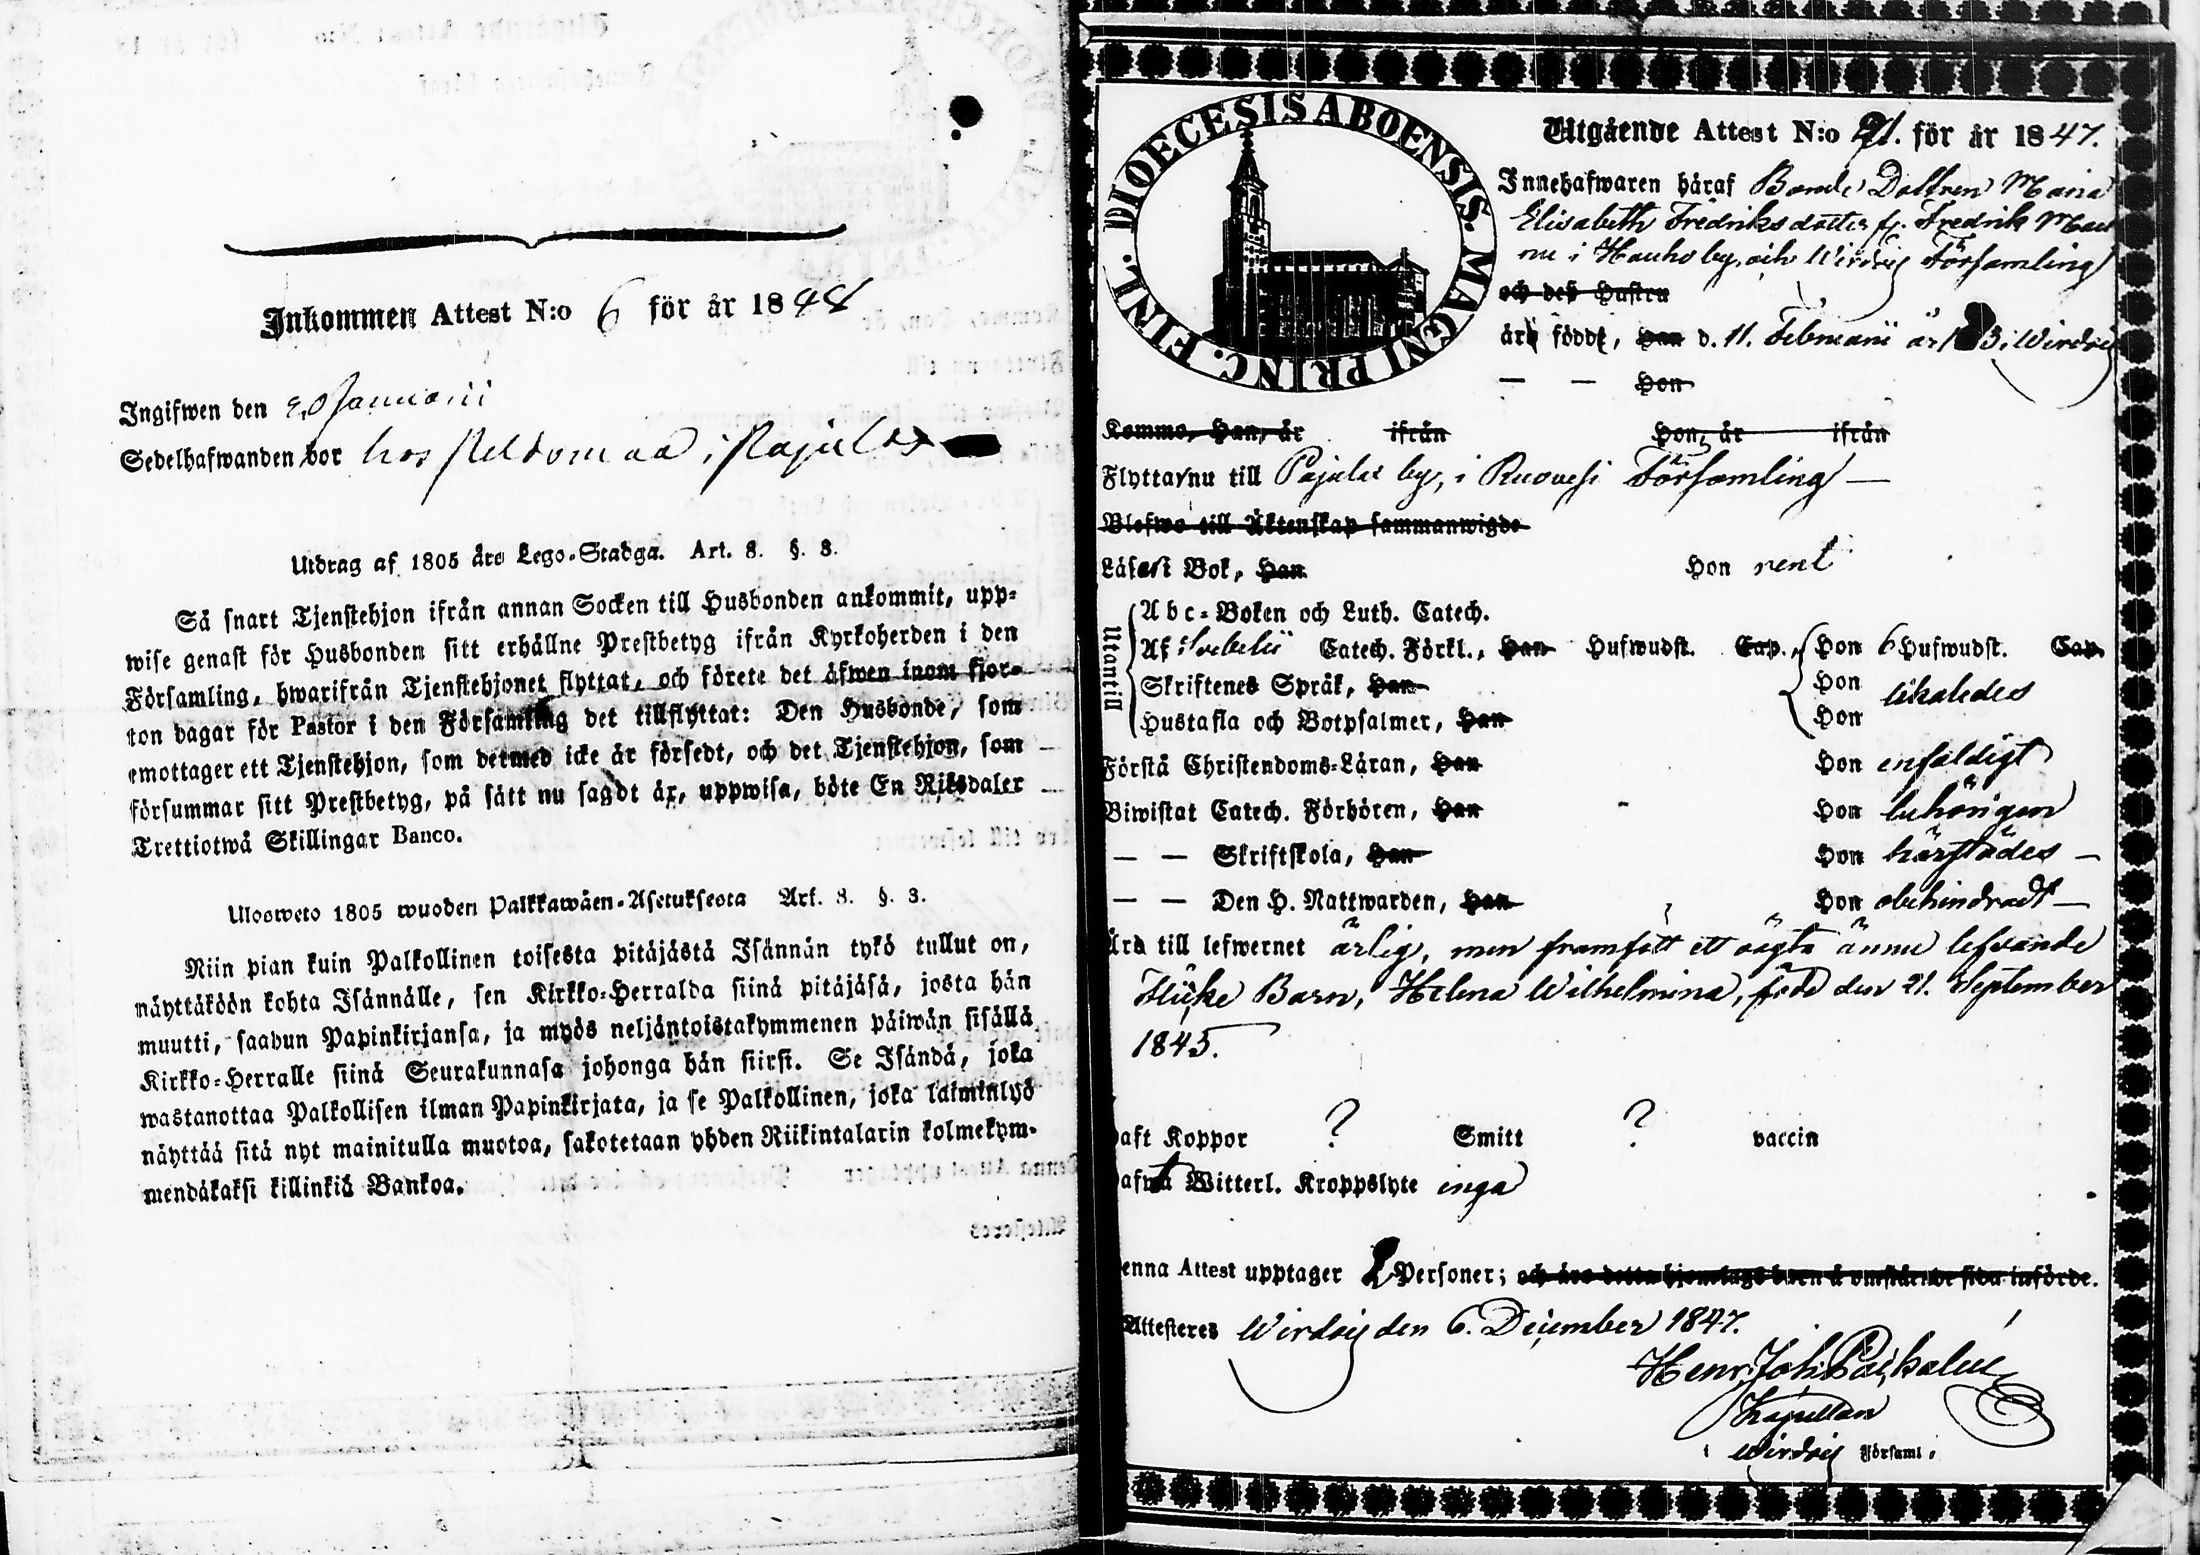 Inkommen Attest N:o 6 för år 1848
Ingifwen den 20 Januarii
Sedelhafwanden bor hos i Pajula
Utdrag af 1805 års Lego-Stadga. Art. 8. §. 3.
Så snart Tjenstehjon ifrån annan Socken till Husbonden ankommit, upp-
wise genast för Husbonden sitt erhållne Prestbetyg ifrån Kyrkoherden i den
Församling, hwarifrån Tjenstehjonet flyttat, och förete det äfwen inom fjor-
ton dagar för Pastor i den Församling det tillflyttat: Den Husbonde, som
emottager ett Tjenstehjon, som dermed icke är försedt, och det Tjenstehjon, som
försummar sitt Prestbetyg, på sätt nu sagdt är, uppwisa, böte En Riksdaler
Trettiotwå Skillingar Banco.
Ulosweto 1805 wuoden Palkkawäen-Asetuksesta Art. 8. §. 3.
Niin pian kuin Palkollinen toisesta pitäjästä Isännän tykö tullut on,
näyttäköön kohta Isännälle, sen Kirkko-Herralda siinä pitäjäsä, josta hän
muutti, saadun Papinkirjansa, ja myös neljäntoistakymmenen päiwän sisällä
Kirkko-Herralle siinä Seurakunnasa johonga hän siirsi. Se Isändä, joka
wastanottaa Palkollisen ilman Papinkirjata, ja se Palkollinen, joka laiminlyö
näyttää sitä nyt mainitulla muotoa, sakotetaan yhden Riikintalarin kolmekym-
mendäkaksi killinkiä Bankoa.
DIOECESIS ABOENSIS. MAGNI PRINC. FINL.
Utgående Attest N:o 91. för år 1847.
Innehafwaren häraf Bonde Dottren Maria
Elisabeth Fredriksdotter fr. Fredrik
i Hauho by, och Wirdois Församling
och deß Hustru
äro födde, han d. 11. Februarii år i Wirdois
— — Hon
Komme, Han, år ifrån Hon, år ifrån
Flyttar nu till Pajula by, i Ruovesi Församling —
Blefwo till Äktenskap sammanwigde
Läsa i Bok, Han Hon rent
Utantill
Abc-Boken och Luth. Catech.
Af Svebelii Catech. Förkl., Han Hufwudst. Cap., Hon 6 Hufwudst. Cap.
Skriftenes Språk, Han Hon likaledes
Hustafla och Botpsalmer, Han Hon
Förstå Christendoms-Läran, Han Hon enfaldigt
Biwistat Catech. Förhören, Han Hon behörigen
— — Skriftskola, Han Hon härstädes —
— — Den H. Nattwarden, Han Hon obehindradt —
Äro till lefwernet ärlig, men framfött ett oägta ännu lefvande
Flicke Barn, Helena Wilhelmina, född den 21. September
1845.
aft Koppor ? Smitt ? vaccin
afwa Witterl. Kroppslyte inga
enna Attest upptager 2 Personer; och äro detta hjonelags barn å omstående sida införde.
Attesteres Wirdois den 6. December 1847.
Henr. Joh.
Kapellan
i Wirdois Församl.